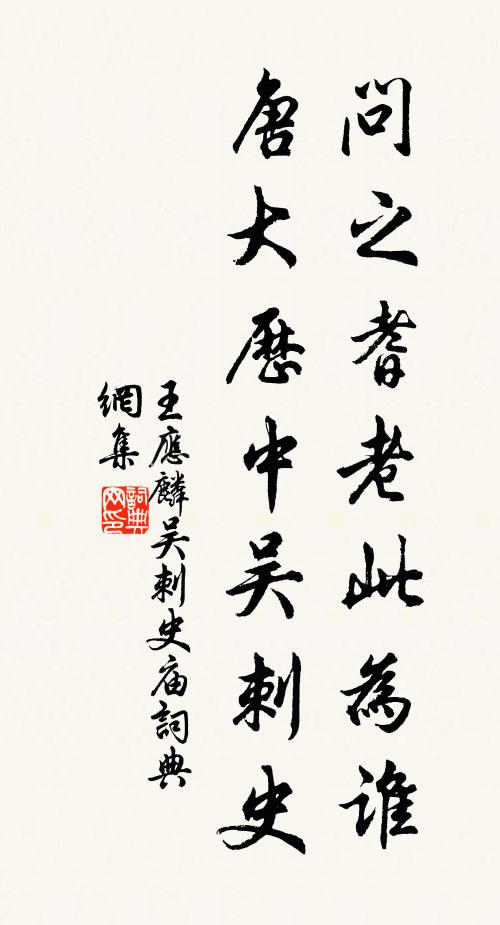 問之耆老此為誰
唐大歷中吴刺史
王應麟吴刺史庙詞典
網集
詞典
网印